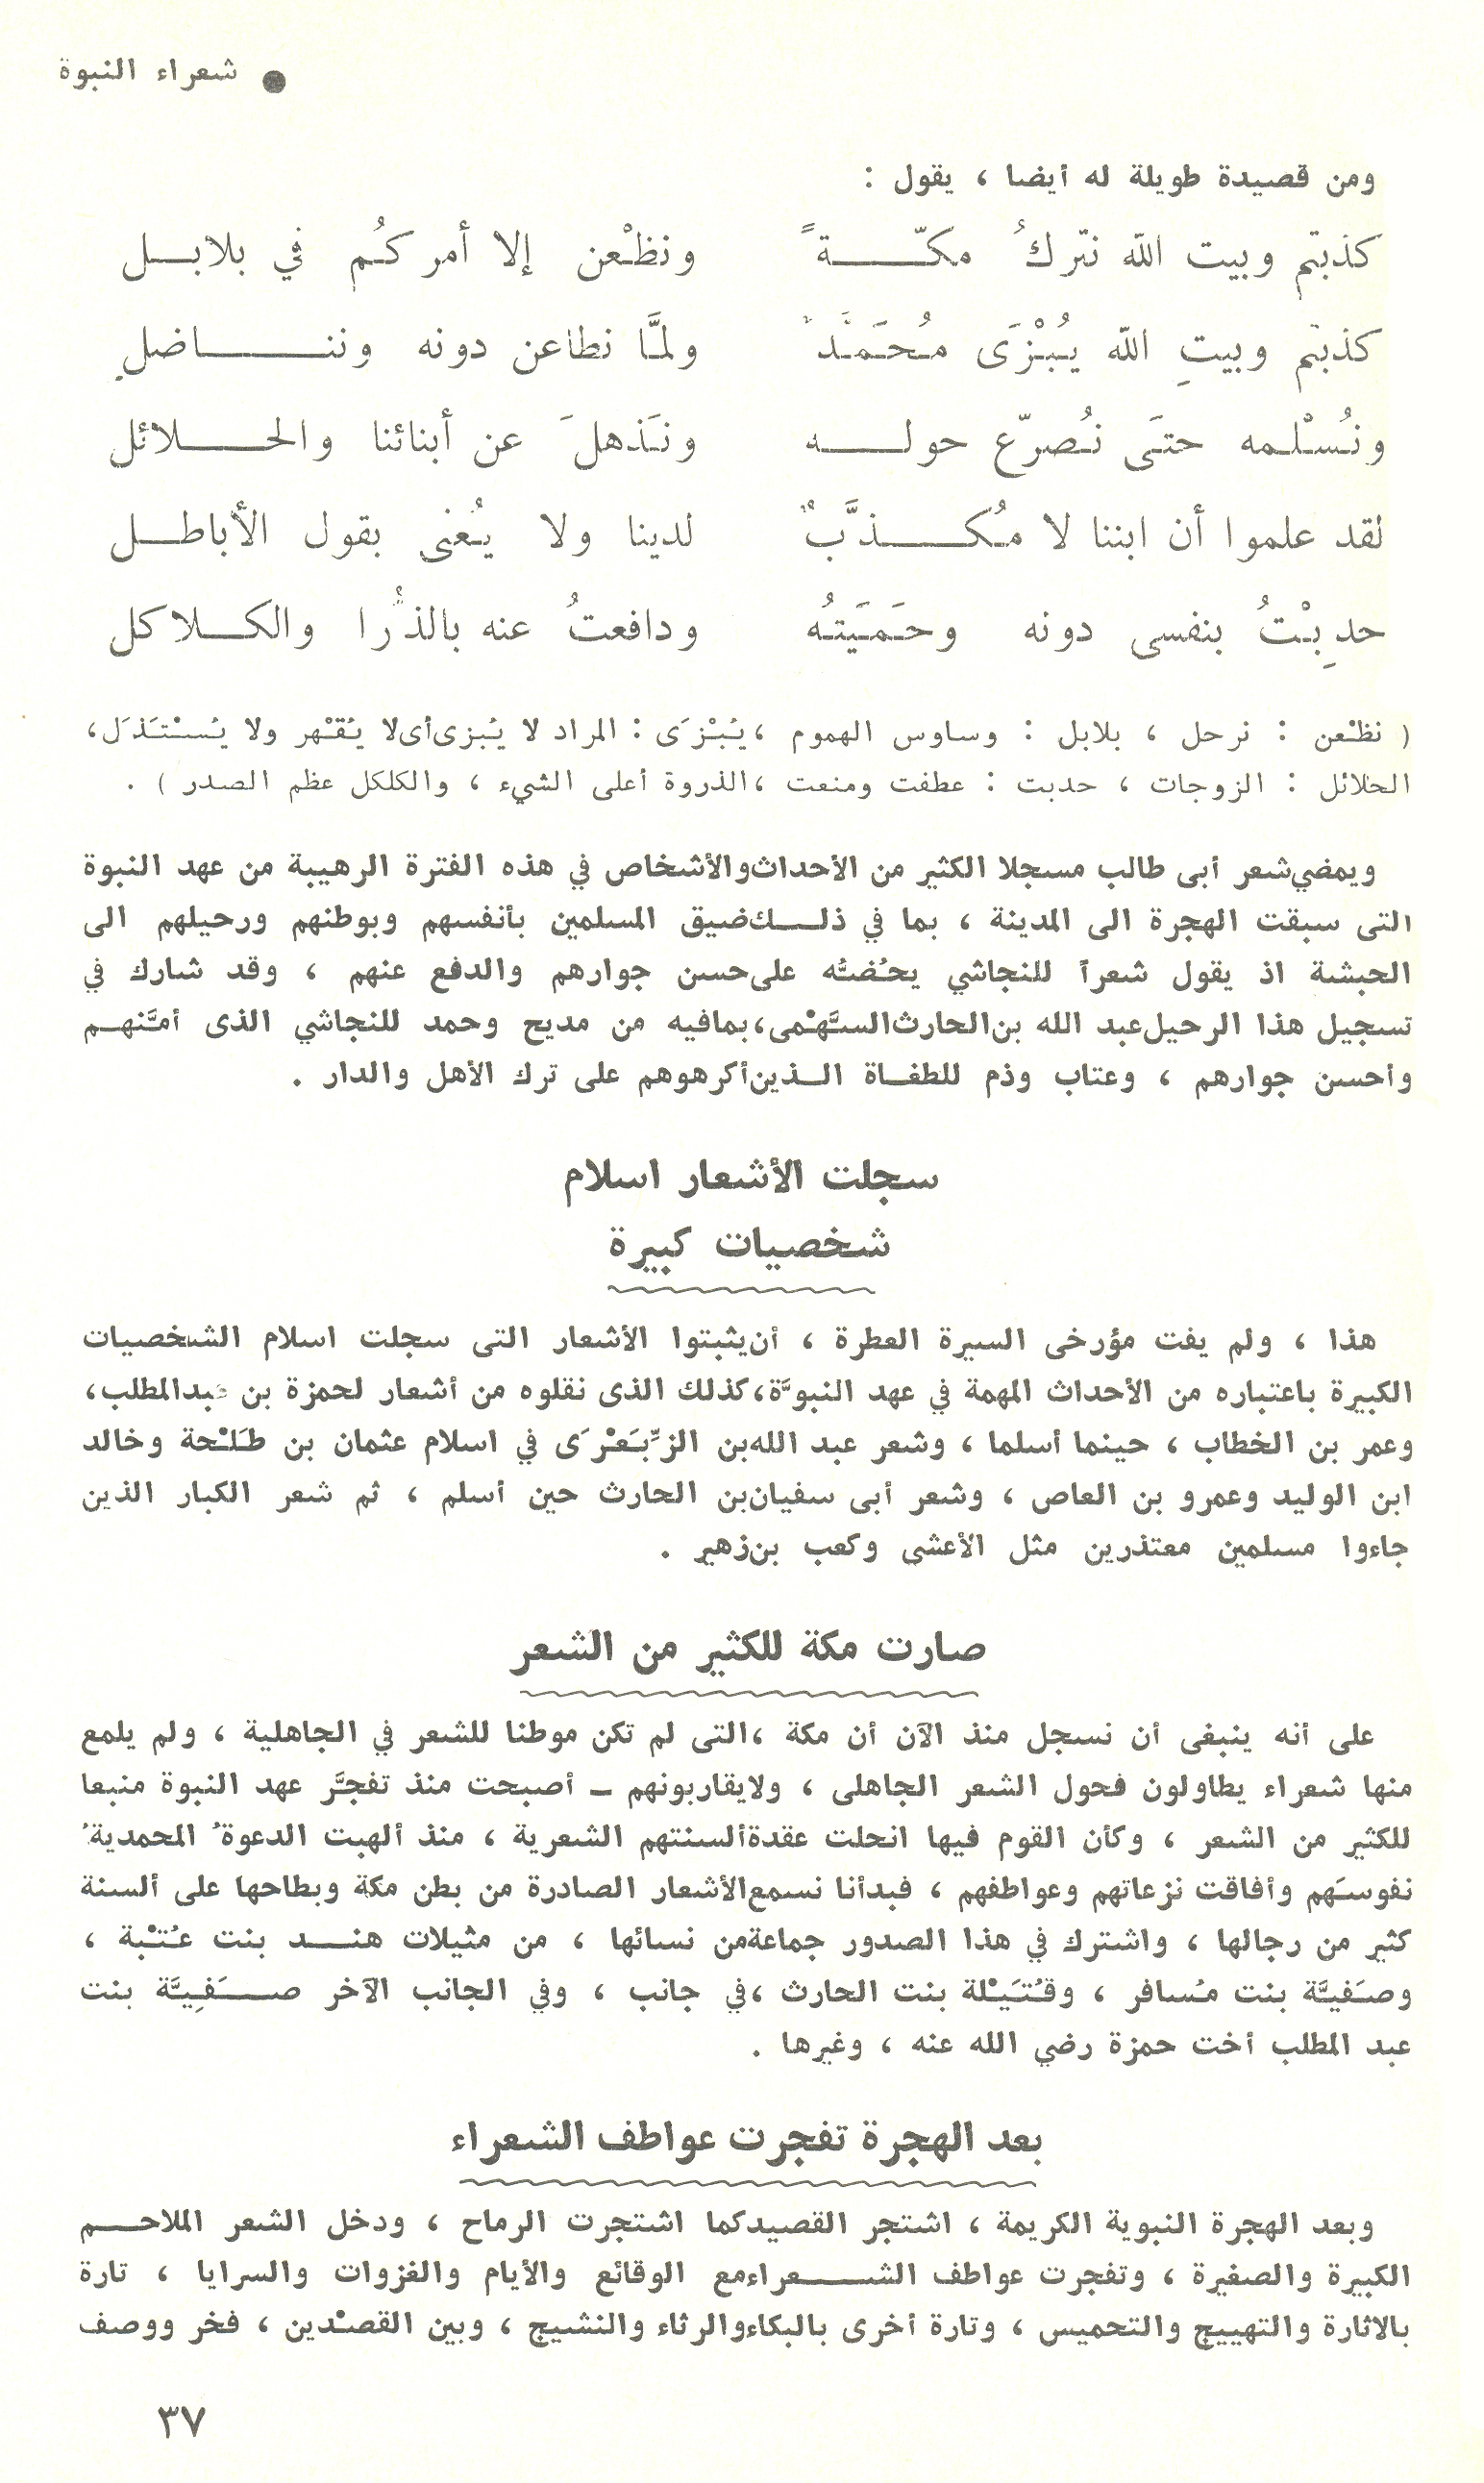 ● شعراء النبوة
ومن قصيدة طويلة له أيضا ، يقول :
كذبتم وبيت الله نتركُ مكّـــــة ً ونظْعن إلا أمركُم في بلابــل
كذبتم وبيتِ الله يُبْزَى مُحَمَّدٌ ولمَّا نطاعن دونه وننـــــاضلِ
ونُسْلمه حتَى نُصرّع حولـــه ونَذهلَ عن أبنائنا والحـــلائل
لقد علموا أن ابننا لا مُكـــذَّبٌ لدينا ولا يُعْنى بقول الأباطــل
حدِبْتُ بنفسى دونه وحَمَيَتهُ ودافعتُ عنه بالذُّرا والكــلاكل
( نظْعن : نرحل ، بلابل : وساوس الهموم ، يُبْزَى : المراد لا يُبزى أى لا يُقْهر ولا يُسْتَذَل ،
الحلائل : الزوجات ، حدبت : عطفت ومنعت ، الذروة أعلى الشيء ، والكلكل عظم الصدر ) .
ويمضي شعر أبى طالب مسجلا الكثير من الأحداث والأشخاص في هذه الفترة الرهيبة من عهد النبوة
التى سبقت الهجرة الى المدينة ، بما في ذلــك ضيق المسلمين بأنفسهم وبوطنهم ورحيلهم الى
الحبشة اذ يقول شعراً للنجاشي يحُضُّه على حسن جوارهم والدفع عنهم ، وقد شارك في
تسجيل هذا الرحيل عبد الله بن الحارث السَّهْمى ، بما فيه من مديح وحمد للنجاشي الذى أمَّنهـم
وأحسن جوارهم ، وعتاب وذم للطغـاة الـذين أكرهوهم على ترك الأهل والدار .
سجلت الأشعار اسلام
شخصيات كبيرة
هذا ، ولم يفت مؤرخى السيرة العطرة ، أن يثبتوا الأشعار التى سجلت اسلام الشخصيات
الكبيرة باعتباره من الأحداث المهمة في عهد النبوَّة ، كذلك الذى نقلوه من أشعار لحمزة بن عبد المطلب ،
وعمر بن الخطاب ، حينما أسلما ، وشعر عبد الله بن الزِّبَعْرَى في اسلام عثمان بن طَلْحة وخالد
ابن الوليد وعمرو بن العاص ، وشعر أبى سفيان بن الحارث حين أسلم ، ثم شعر الكبار الذين
جاءوا مسلمين معتذرين مثل الأعشى وكعب بن زهير .
صارت مكة للكثير من الشعر
على أنه ينبغى أن نسجل منذ الآن أن مكة ، التى لم تكن موطنا للشعر في الجاهلية ، ولم يلمع
منها شعراء يطاولون فحول الشعر الجاهلى ، ولا يقاربونهم ــ أصبحت منذ تفجَّر عهد النبوة منبعا
للكثير من الشعر ، وكأن القوم فيها انحلت عقدة ألسنتهم الشعرية ، منذ ألهبت الدعوةُ المحمديةُ
نفوسَهم وأفاقت نزعاتهم وعواطفهم ، فبدأنا نسمع الأشعار الصادرة من بطن مكة وبطاحها على ألسنة
كثير من رجالها ، واشترك في هذا الصدور جماعة من نسائها ، من مثيلات هنــد بنت عُتْبة ،
وصَفيَّة بنت مُسافر ، وقُتَيْلة بنت الحارث ، في جانب ، وفي الجانب الآخر صــفِيَّة بنت
عبد المطلب أخت حمزة رضي الله عنه ، وغيرها .
بعد الهجرة تفجرت عواطف الشعراء
وبعد الهجرة النبوية الكريمة ، اشتجر القصيد كما اشتجرت الرماح ، ودخل الشعر الملاحــم
الكبيرة والصغيرة ، وتفجرت عواطف الشــــعراء مع الوقائع والأيام والغزوات والسرايا ، تارة
بالاثارة والتهييج والتحميس ، وتارة أخرى بالبكاء والرثاء والنشيج ، وبين القصْدين ، فخر ووصف
٣٧